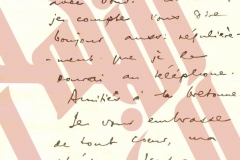 avec vous. 
je compte vous dire
bonjour aussi régulière-
ment que je le
pourrai au téléphone.
Amitiés à la bretonne
Je vous embrasse
de tout coeur, ma